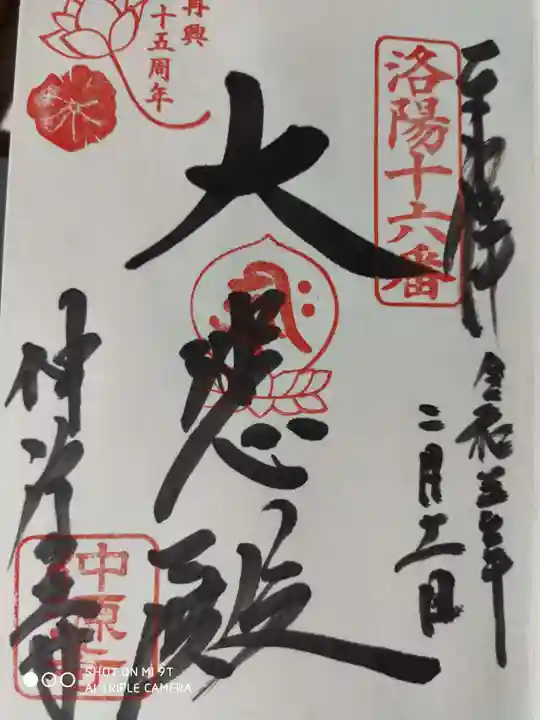 奉拝
令和五年
二月十一日
洛陽十六番
大悲殿
再興
十五周年
仲源寺
SHOT ON MI 9T
AI TRIPLE CAMERA